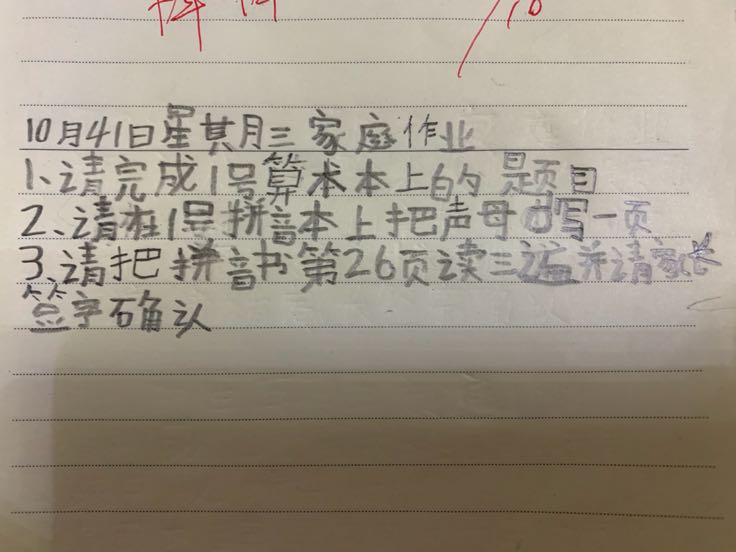 10月41日星其月三家庭作业
1、请完成1号算术本上的题目
2、请在1号拼音本上把声母d写一页
3、请把拼音书第26页读三遍并请家长
签字确认